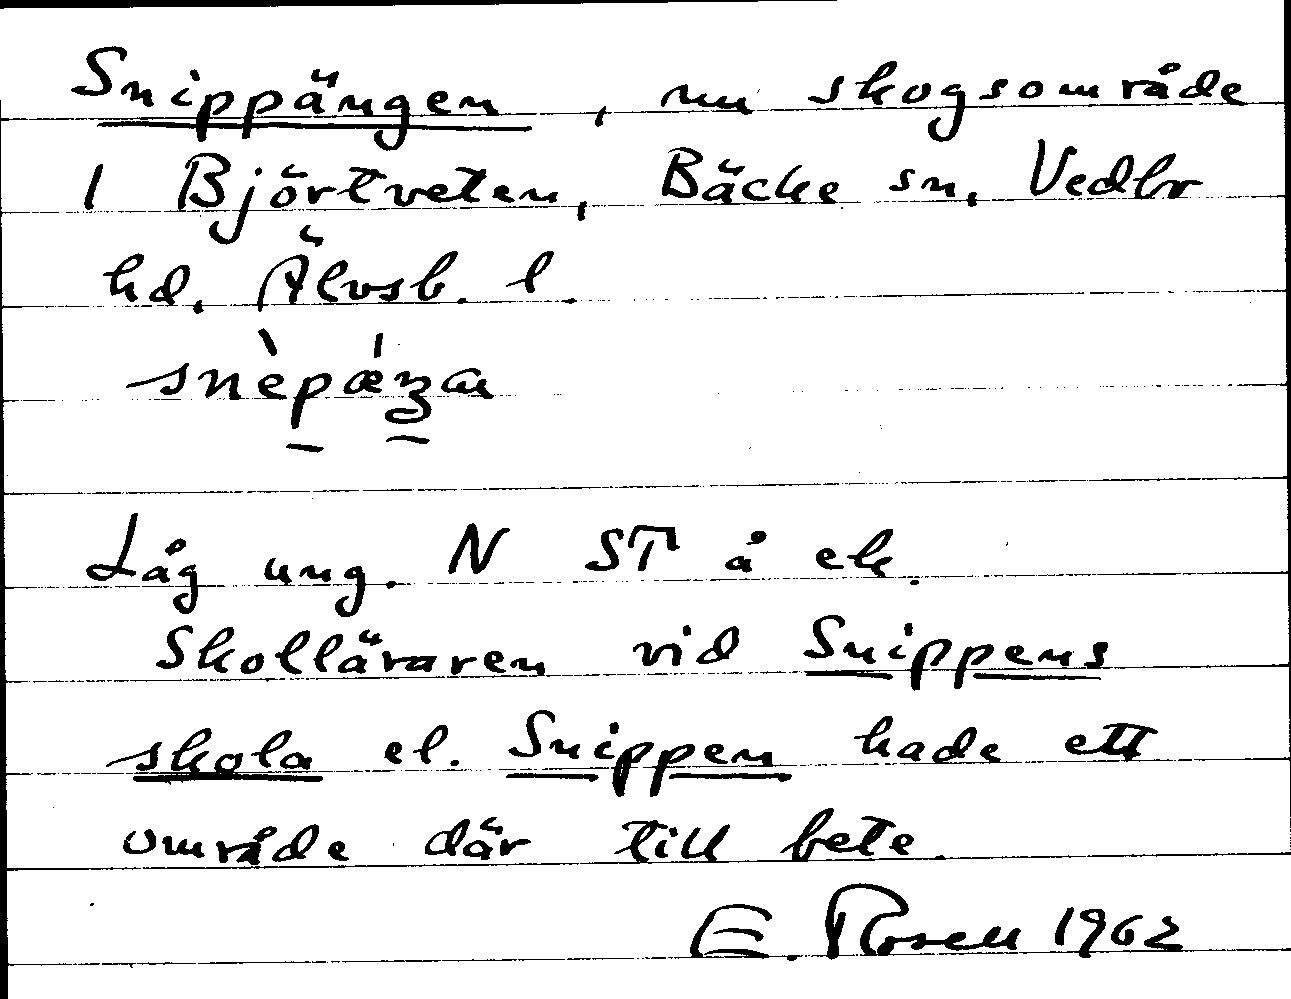 Snippängen, nu skogsområde
i Björtveten, Bäcke sn, Vedbr
hd. Älvsb. l.
snèpǽŋa
Låg ung. N ST å ek.
Skolläraren vid Snippens
skola el. Snippen hade ett
område där till bete.
E. Rosell 1962